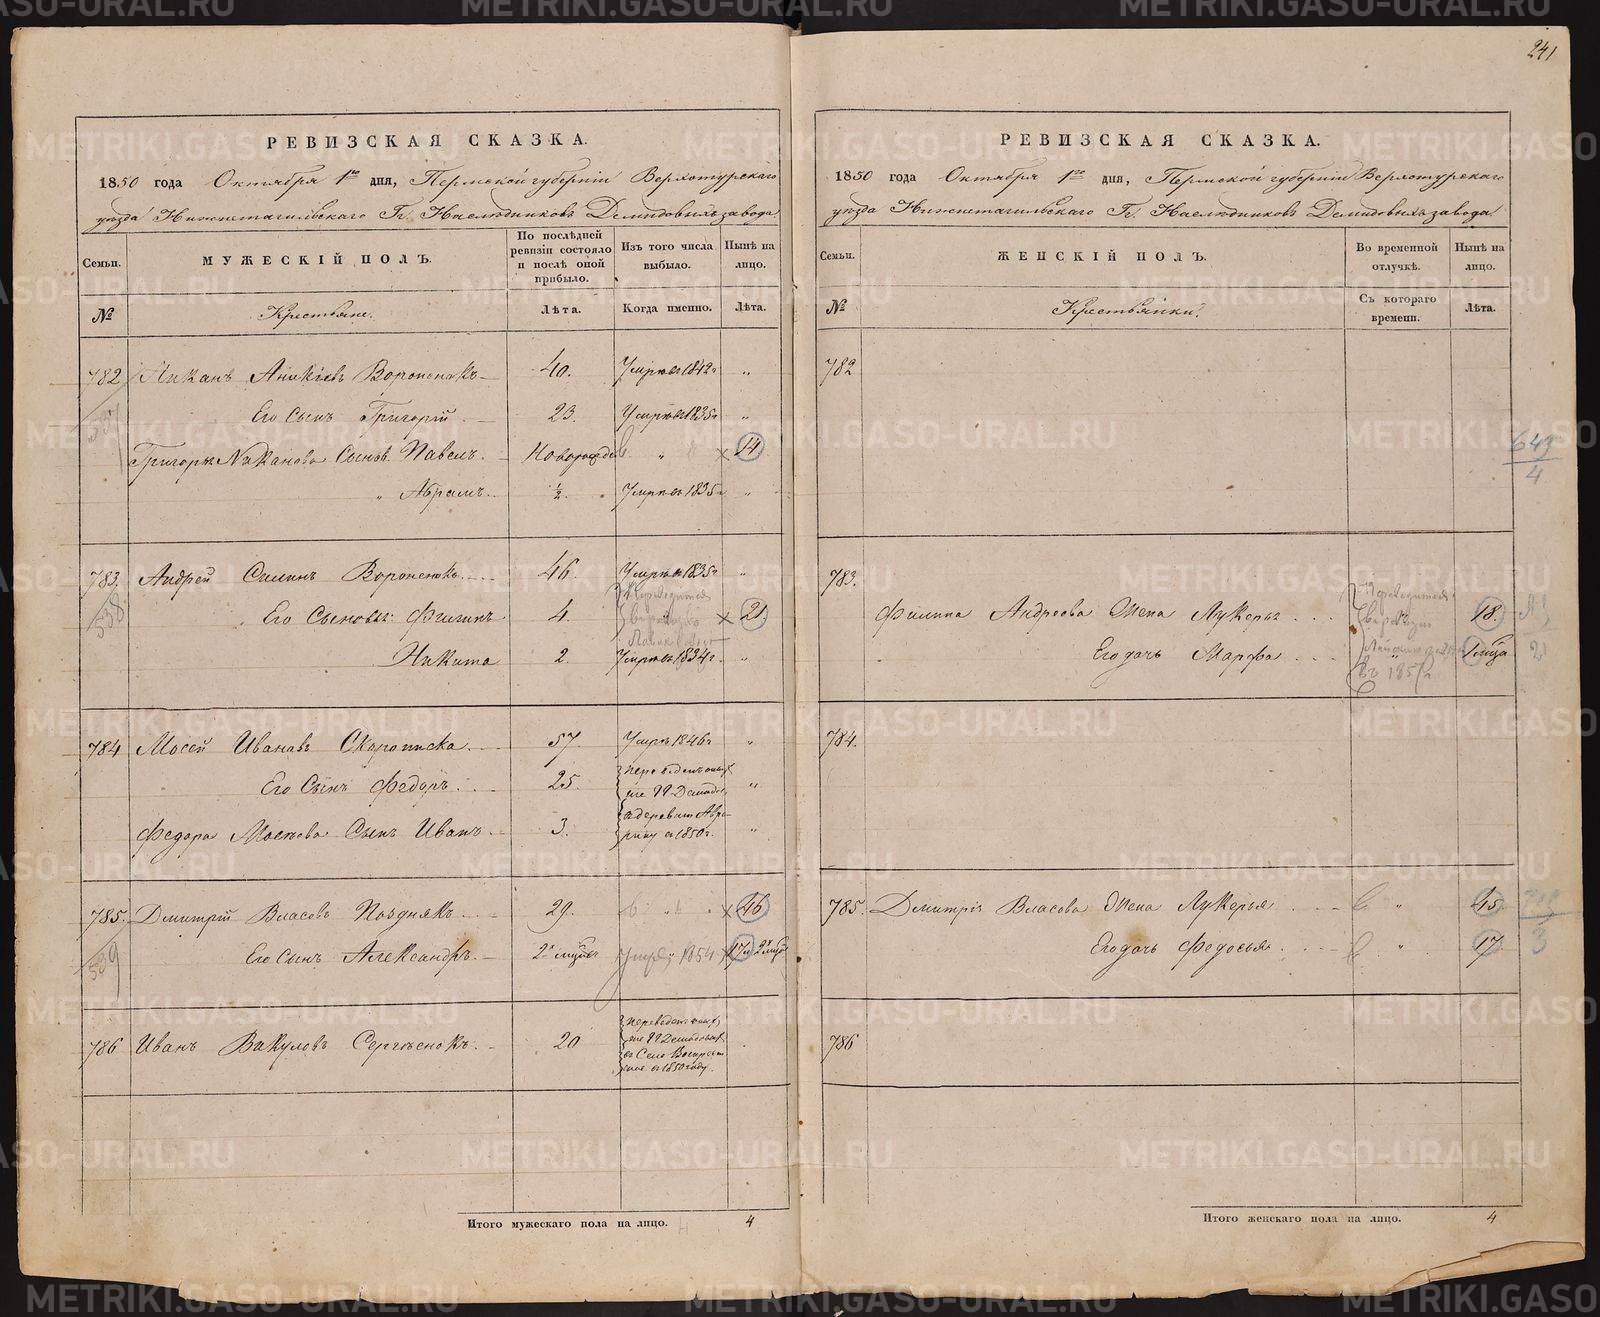 241
РЕВИЗСКАЯ СКАЗКА.
1850 года Октября 1го дня, Пермской губерніи Верхотурскаго
уѣзда Нижнетагильскаго Гг. Наслѣдниковъ Демидовыхъ завода
Семьи.
МУЖЕСКІЙ ПОЛЪ.
По послѣдней ревизіи состояло и послѣ оной прибыло.
Изъ того числа выбыло.
Нынѣ на лицо.
№
Крестьяне.
Лѣта.
Когда именно.
Лѣта.
782 Никанъ Аникіевъ Вороненокъ 40. Умре въ 1842г „
537
Его Сынъ Григорій 23. Умре въ 1835г „
Григорья Никанова Сынъ Павелъ. Новорожде „ 14
„ Абрамъ ½. Умре въ 1835г „
783. Андрей Силинъ Вороненокъ 46. Умре въ 1835г „
538
Его Сыновья: Филипъ 4. Переводится 21.
Никита 2. Умре въ 1834г. „
784 Мосей Ивановъ Скорописка 57. Умре 1846г „
Его Сынъ Федоръ. 25. „
Федора Мосеева Сынъ Иванъ 3. въ 1850г. „
785. Дмитрій Власовъ Позднякъ 29. „ 46
539
Его Сынъ Александръ. Умре 1854 17
786 Иванъ Вакуловъ Сергѣенокъ. 20
въ Село
въ 1850 году.
Итого мужескаго пола на лицо. 4
РЕВИЗСКАЯ СКАЗКА.
1850 года Октября 1го дня, Пермской губерніи Верхотурскаго
уѣзда Нижнетагильскаго Гг. Наслѣдниковъ Демидовыхъ завода
Семьи.
ЖЕНСКІЙ ПОЛЪ.
Во временной отлучкѣ.
Нынѣ на лицо.
№
Крестьянки.
Съ котораго времени.
Лѣта.
782
649
4
783.
Филипа Андреева Жена Лукерья Переводится 18.
Его дочь Марфа
въ 1852
2
784.
785. Дмитрія Власова Жена Лукерья „ 45
Его дочь Федосья „ 17
3
786
Итого женскаго пола на лицо. 4
METRIKI.GASO-URAL.RU